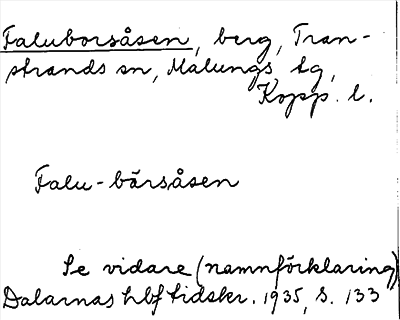 Faluborsåsen, berg, Tran-
strands sn, Malungs tg,
Kopp. l.
Falu-bårsåsen
Se vidare (namnförklaring)
Dalarnas hbf tidskr. 1935, s. 133